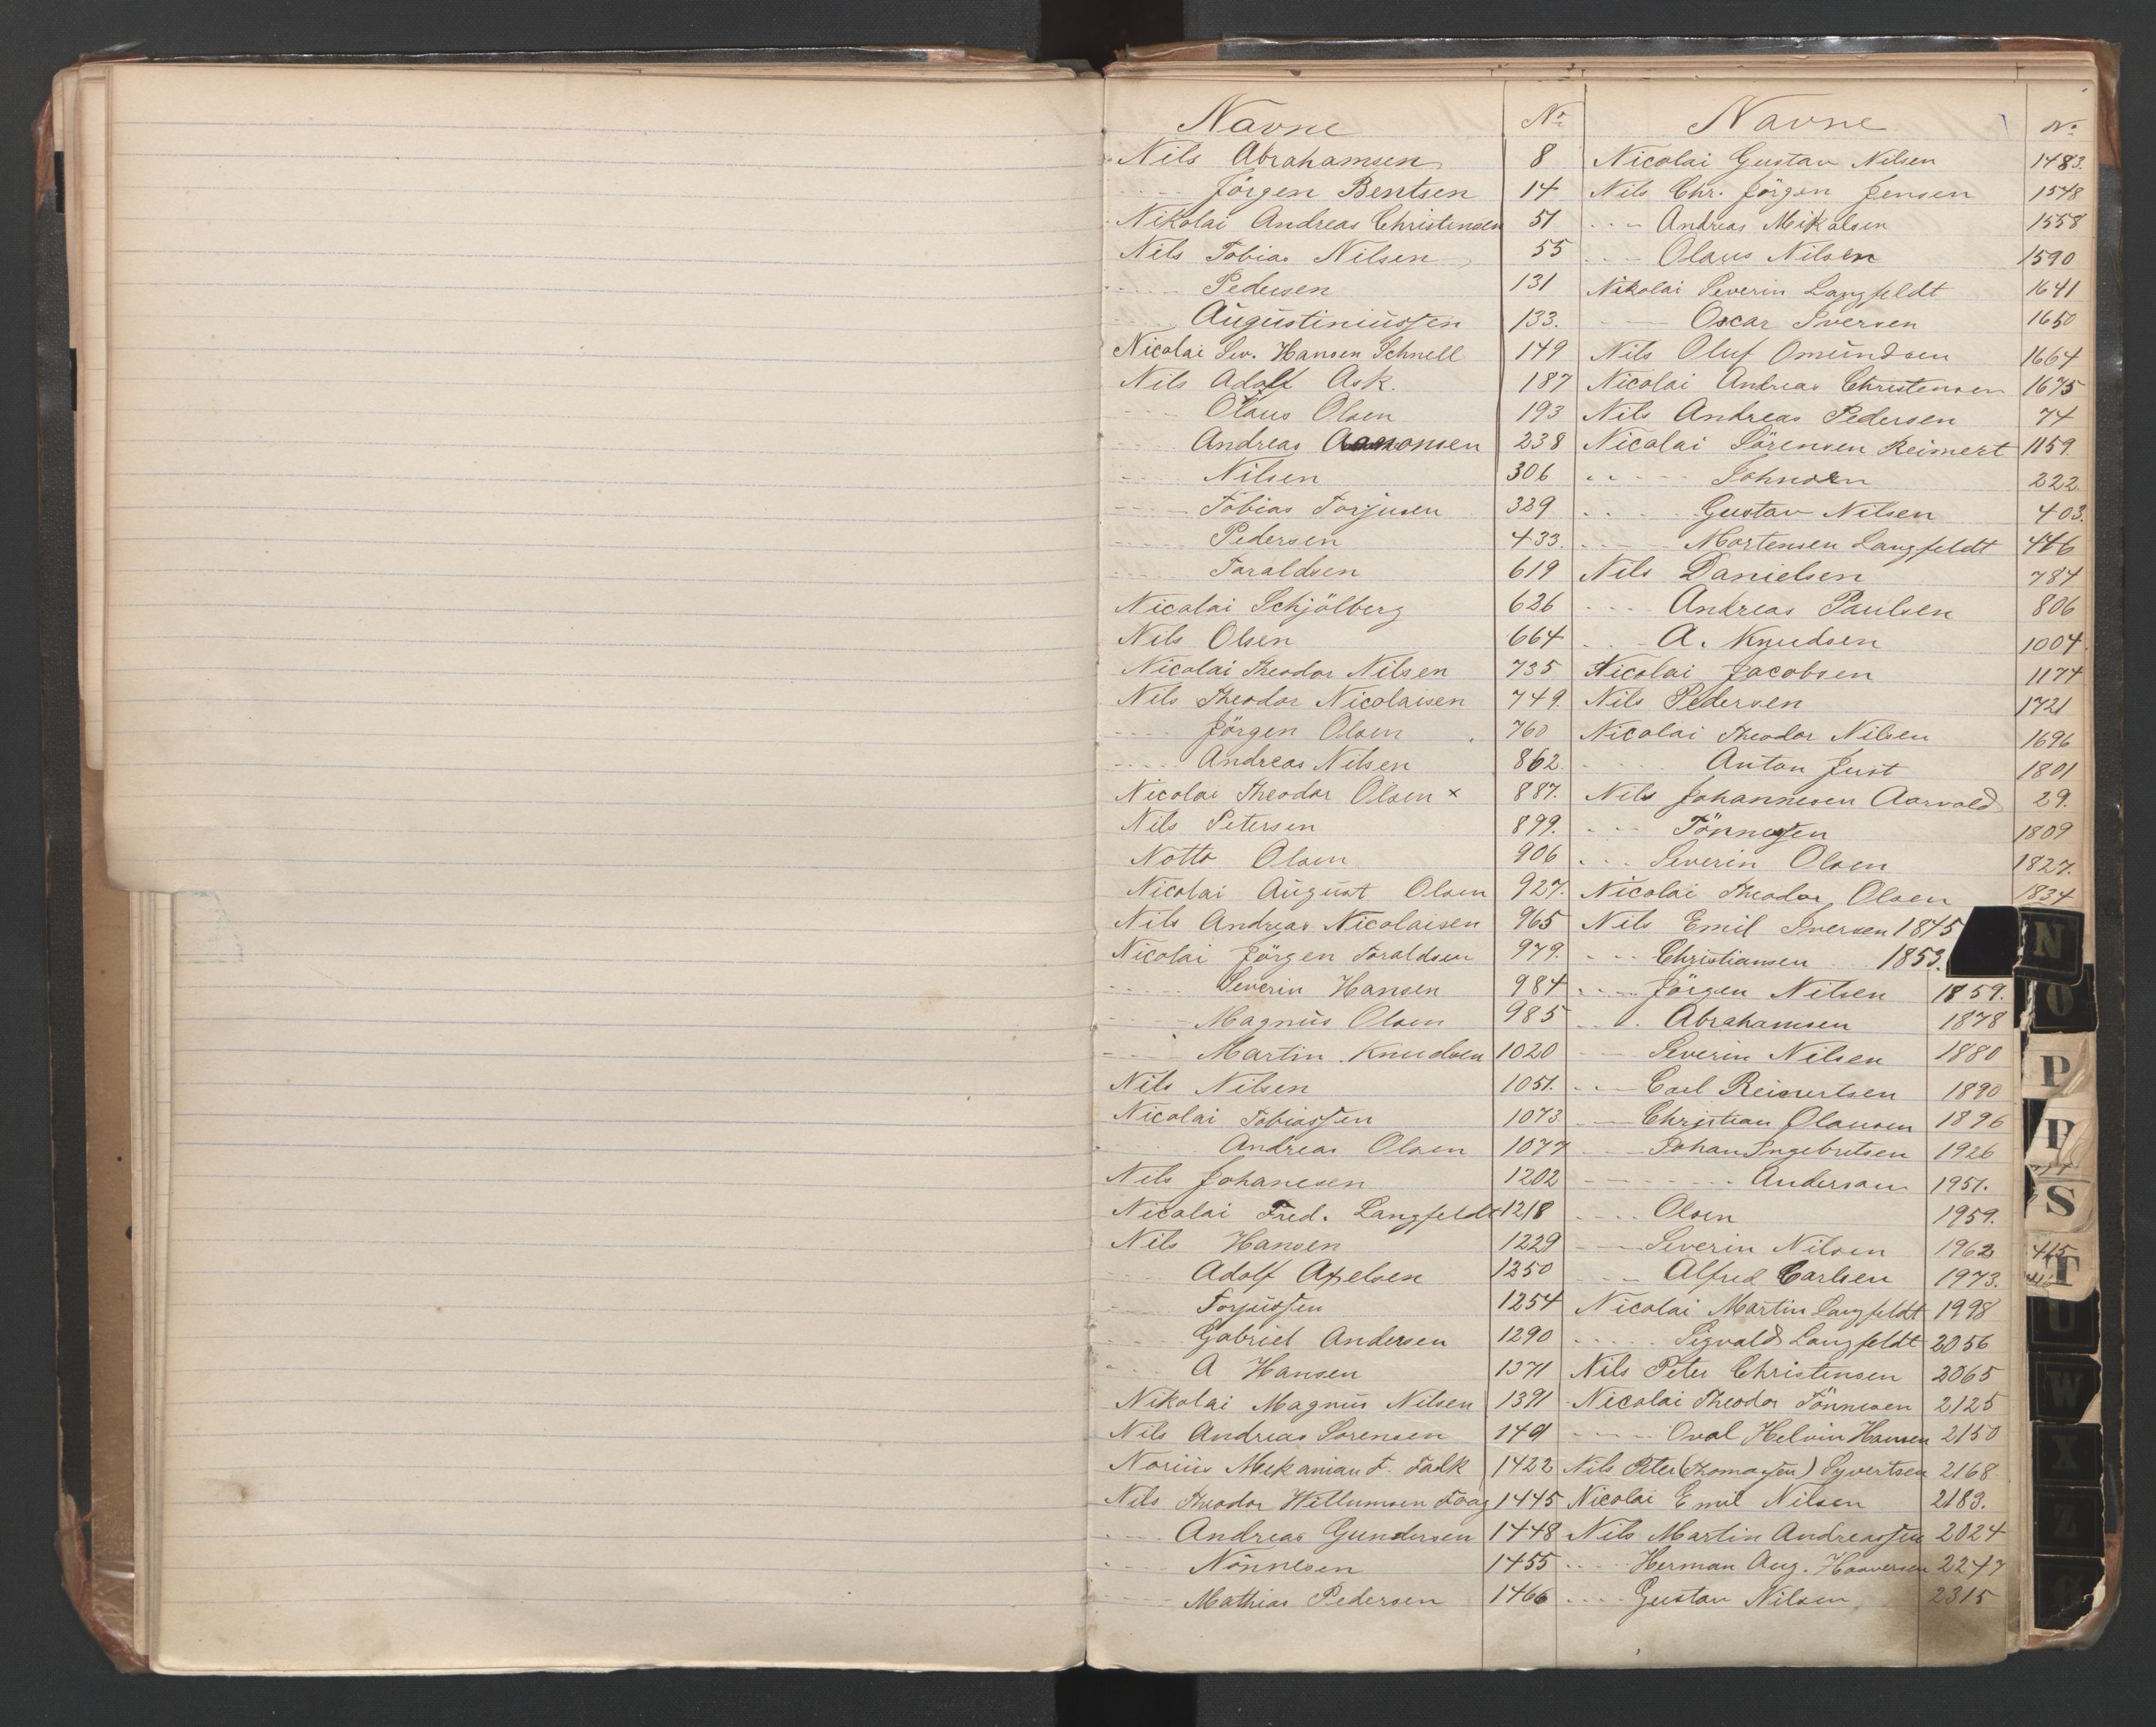 Navne Nr
Nils Abrahamsen 8
---- Jörgen Bentsen 14
Nikolai Andreas Christensen 51
Nils Tobias Nilsen 55
---- Pedersen 131
---- Augustiniussen 133.
Nicolai Sev. Hansen Schnell 149
Nils Adolf Ask. 187
---- Olaus Olsen 193
---- Andreas Aanonsen 238
---- Nilsen 306
---- Tobias Torjusen 329
---- Pedersen 433.
---- Taraldsen 619
Nicolai Schjölberg 636
Nils Olsen 664
Nicolai Theodor Nilsen 735
Nils Theodor Nicolaisen 749.
---- Jörgen Olsen 760
---- Andreas Nilsen 862.
Nicolai Theodor Olsen x 887.
Nils Petersen 899.
Notto Olsen 906
Nicolai August Olsen 927.
Nils Andreas Nicolaisen 965
Nicolai Jörgen Taraldsen 979.
---- Severin Hansen 984
---- Magnus Olsen 985
---- Martin Knudsen 1020
Nils Nilsen 1051.
Nicolai Tobiassen 1073
---- Andreas Olsen 1077
Nils Johanesen 1202
Nicolai Fred. Langfeldt 1218
Nils Hansen 1229
---- Adolf Axelsen 1250
---- Torjussen 1254
---- Gabriel Andersen 1290
---- A Hansen 1371
Nikolai Magnus Nilsen 1391
Nils Andreas Sorensen 1401
Norius Mekanian F. Falk 1422
Nils Theodor Willumsen 1445
---- Andreas Gundersen 1448
---- Nönnesen 1455
---- Mathias Pedersen 1466
Navne No
Nicolai Gustav Nilsen 1483.
Nils Chr. Jörgen Jensen 1548
---- Andreas Mikalsen 1558
---- Olaus Nilsen 1590
Nikolai Severin Langfeldt 1641
---- Oscar Iversen 1650
Nils Oluf Omundsen 1664
Nicolai Andreas Christensen 1675
Nils Andreas Pedersen 74
Nicolai Sörensen Reimert 1159.
---- Johnsen 222.
---- Gustav Nilsen 403.
---- Mortensen Langfeldt 446
Nils Danielsen 784
---- Andreas Paulsen 806
---- A. Knudsen 1004
Nicolai Jacobsen 1174
Nils Pedersen 1721
Nicolai Theodor Nilsen 1696
---- Anton Just 1801
Nils Johannesen Aarvold 29.
---- Tönnessen 1809
---- Severin Olsen 1827.
Nicolai Theodor Olsen 1834
Nils Emil Iversen 1845
---- Christiansen 1853.
---- Jörgen Nilsen 1859.
---- Abrahamsen 1878
---- Severin Nilsen 1880
---- Carl Reinertsen 1890
---- Christian Olausen 1896
---- Johan Ingebretsen 1926
---- Andersen 1951.
---- Olsen 1959.
---- Severin Nilsen 1962
---- Alfred Carlsen 1973.
Nicolai Martin Langfeldt 1998
---- Sigvald Langfeldt 2056
Nils Peter Christensen 2065
Nicolai Theodor Tönnesen 2125
---- Oval Helvin Hansen 2150
Nils Peter (Thomassen) Syvertsen 2168
Nicolai Emil Nilsen 2183.
Nils Martin Andreassen 2024
---- Herman Aug. Haaversen 2247
---- Gustav Nilsen 2315
N
O
P
P
S
415
T
U
W
X
Z